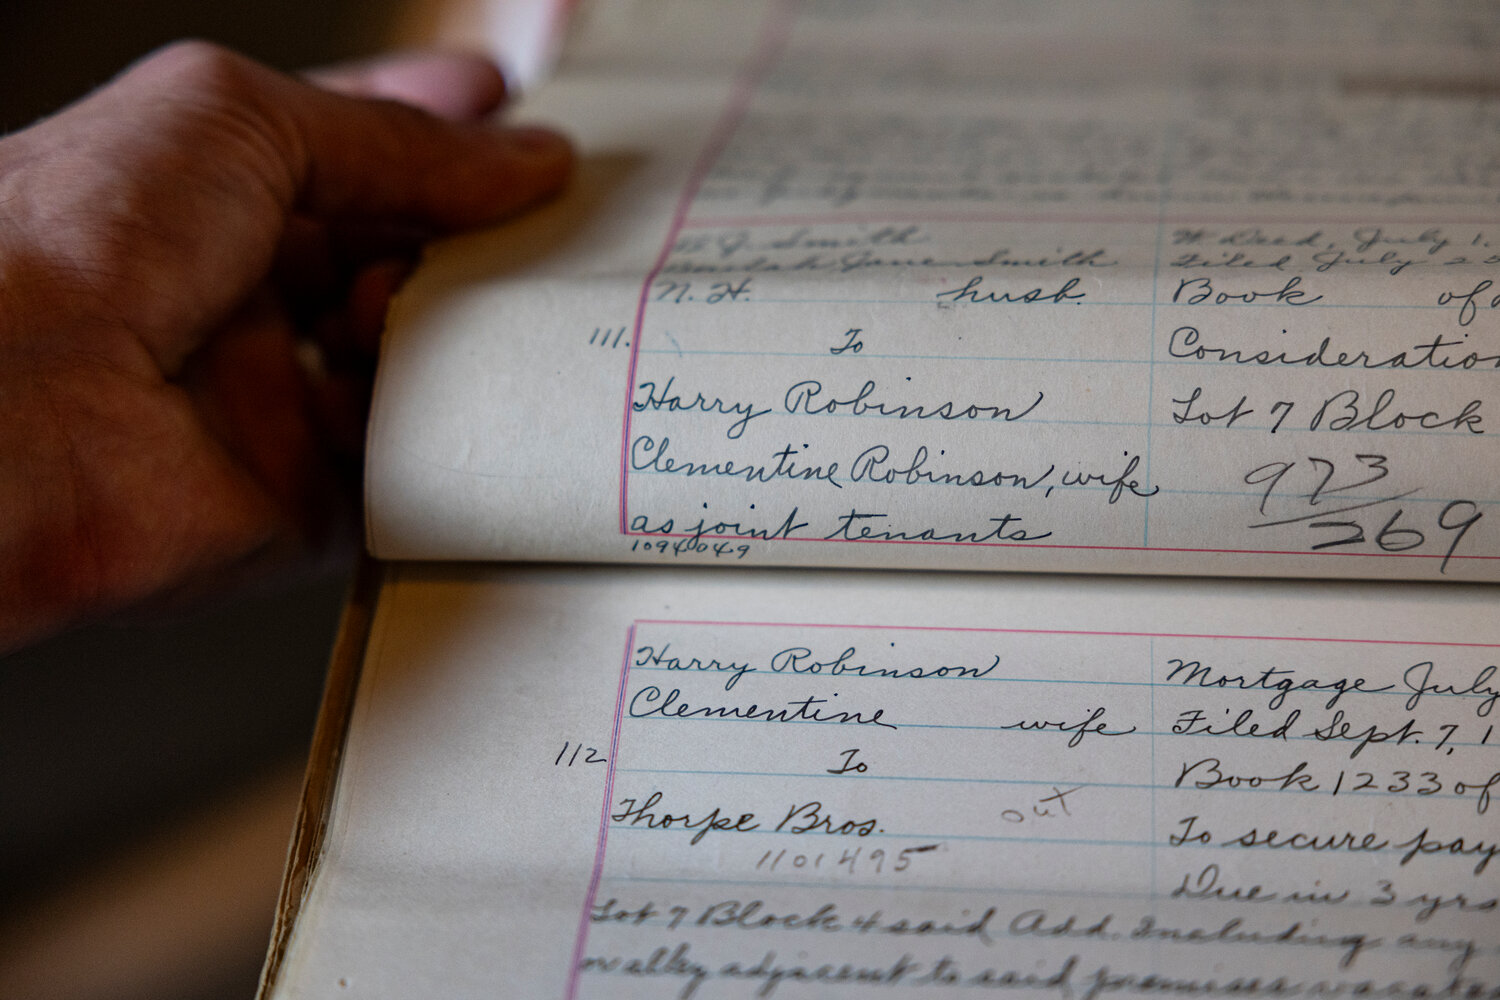 Smith
Jane Smith
N. H. husb.
111.
To
Harry Robinson
Clementine Robinson, wife
as joint tenants
1094049
W. Deed, July 1.
Filed July
Book of
Consideration
Lot 7 Block
973
269
Harry Robinson
Clementine wife
112
To
Thorpe Bros.
out
1101495
Mortgage July
Filed Sept. 7, 1
Book 1233 of
To secure pay
Due in 3 yrs
Lot 7 Block 4 said Add. Including any
or alley adjacent to said premises vacated